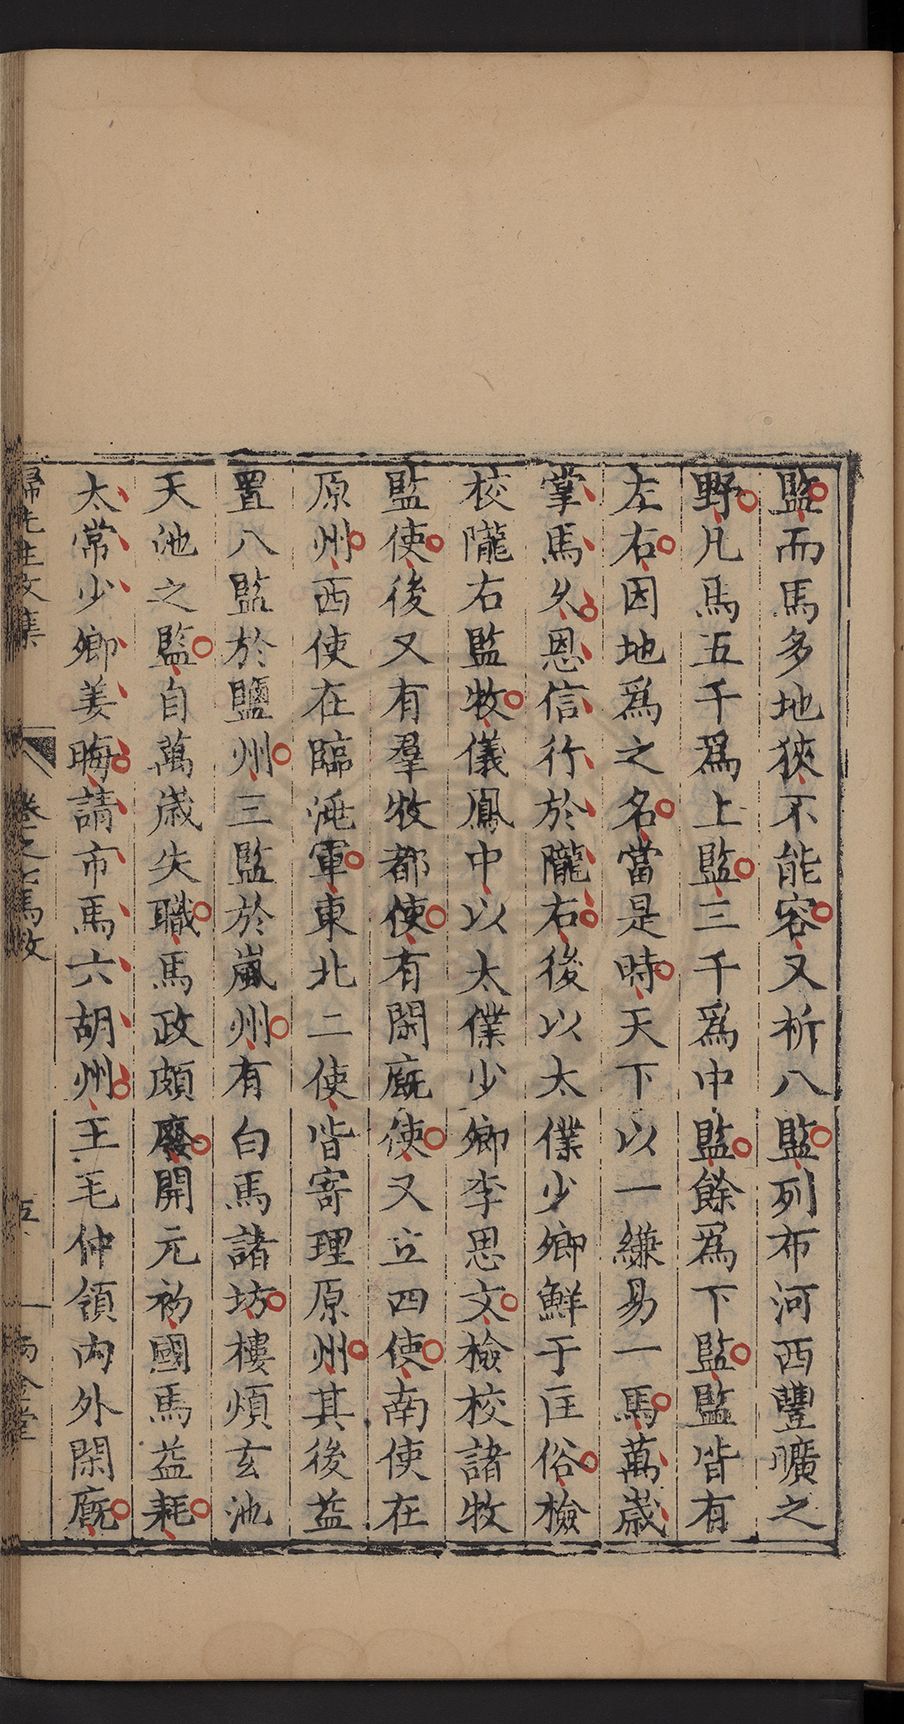 監而馬多地狹不能容又析八監列布河西豐曠之
野凡馬五千爲上監三千爲中監餘爲下監監皆有
左右因地爲之名當是時天下以一縑易一馬萬歲
掌馬久恩信行於隴右後以太僕少卿鮮于匡俗檢
校隴右監牧儀鳳中以太僕少卿李思文檢校諸牧
監使後又有羣牧都使有閑廐使又立四使南使在
原州西使在臨洮軍東北二使皆寄理原州其後益
置八監於鹽州三監於嵐州有白馬諸坊樓煩玄池
天池之監自萬歲失職馬政頗廢開元初國馬益耗
太常少卿姜晦請市馬六胡州王毛仲領內外閑廐
歸先生文集 卷之 馬政 五